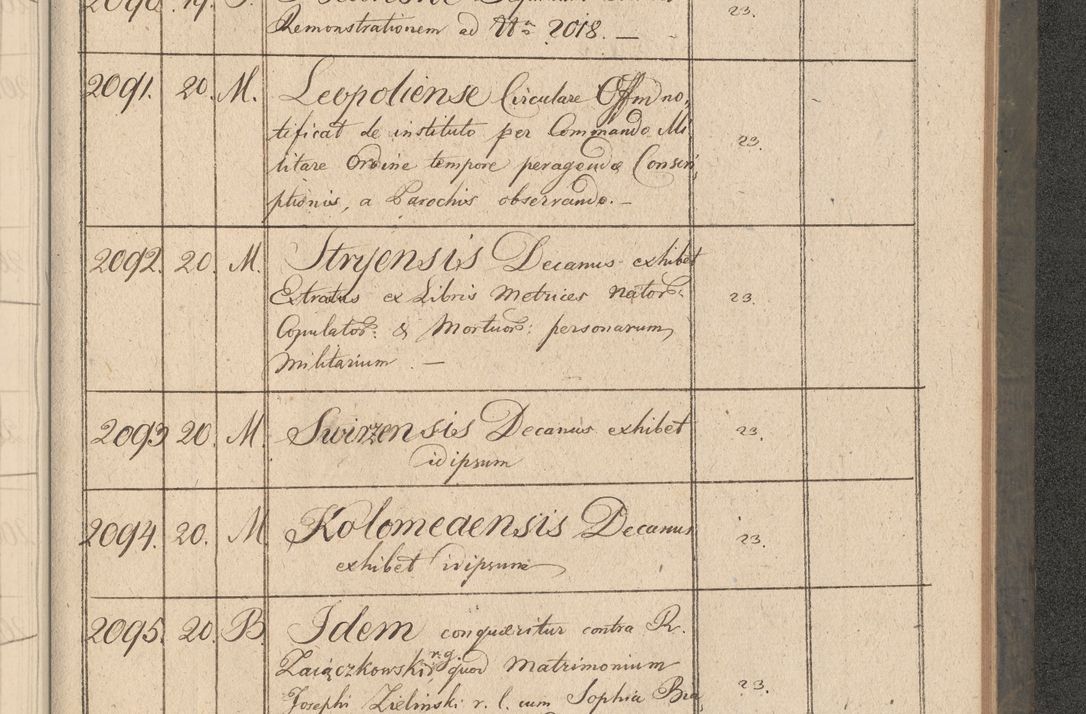 Demonstrationem ad Nrm 2018. — 23.
2091. 20. M. Leopoliense Circulare Offm no,
tificat de instituto per Commando Mi
litare Ordine tempore peragendæ Conscri, 23.
ptionis, a Parochis observando. —
2092. 20. M. Stryensis Decanus exhibet
Extratus ex Libris Metrices Nator: 23.
Copulator: & Mortuor: personarum
Militarium —
2093 20. M. Swirzensis Decanus exhibet 23.
idipsum
2094. 20. M Kolomeaensis Decanus 23.
exhibet idipsum
2095. 20. B. Idem conquæritur contra R.
Zaiączkowski r. g. quod Matrimonium
Josephi Zielinski r. l. cum Sophia Bra, 23.